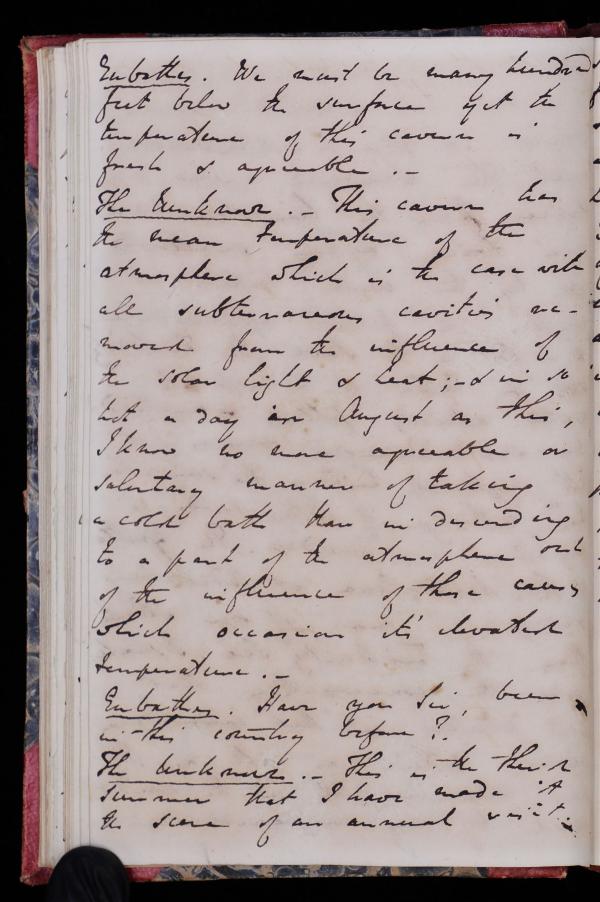 Eubathes. We must be many hundred
feet below the surface yet the
temperature of this cavern is
fresh & agreeable. –
The Unknown. – This cavern has
the mean temperature of the
atmosphere which is the case with
all subterraneous cavities re-
moved from the influence of
the solar light & heat; – & in so
hot a day in August as this,
I know no more agreeable or
salutary manner of taking
a cold bath than in descending
to a part of the atmosphere out
of the influence of those causes
which occasion it's elevated
temperature. –
Eubathes. Have you Sir, been
in this country before?.
The Unknown. – This is the third
summer that I have made it
the scene of an annual visit.